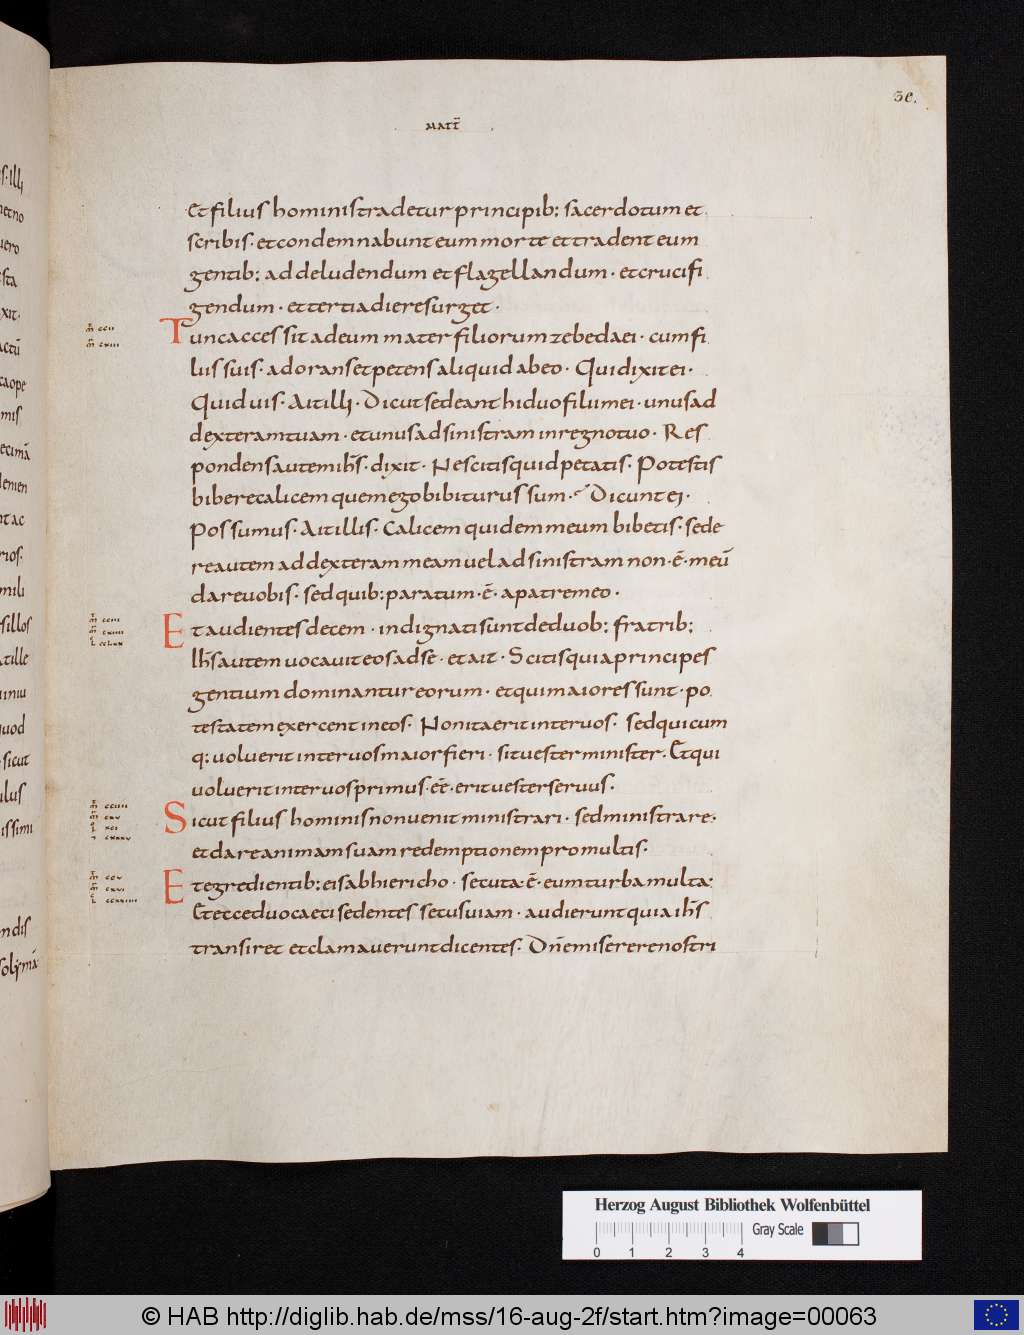 30.
MATT̄
Et filius hominis tradetur principib; sacerdotum et
scribis · et condemnabunt eum morte et tradent eum
gentib; ad deludendum et flagellandum · et crucifi
gendum · et tertia die resurget ·
m̄ ccii
m̄ cxiii
Tunc accessit ad eum mater filiorum zebedaei · cum fi
liis suis · adorans et petens aliquid ab eo · Qui dixit ei ·
Quid vis · Ait illi · Dic ut sedeant hi duo filii mei · unus ad
dexteram tuam · et unus ad sinistram in regno tuo · Res
pondens autem ih̄s · dixit · Nescitis quid petatis · Potestis
bibere calicem quem ego bibiturus sum · Dicunt ei ·
Possumus · Ait illis · Calicem quidem meum bibetis · sede
re autem ad dexteram meam vel ad sinistram non · ē · meū
dare vobis · sed quib; paratum · ē · a patre meo ·
Et audientes decem · indignati sunt de duob; fratrib;
Ih̄s autem vocavit eos ad se · et ait · Scitis quia principes
gentium dominantur eorum · et qui maiores sunt · po
testatem exercent in eos · Non ita erit inter vos · sed quicum
q; voluerit inter vos maior fieri · sit vester minister · Et qui
voluerit inter vos primus · eē · erit vester servus ·
Sicut filius hominis non venit ministrari · sed ministrare ·
et dare animam suam redemptionem pro multis ·
m̄ ccv
m̄ cxvi
Et egredientib; eis ab hiericho · secuta · ē · eum turba multa ·
Et ecce duo caeci sedentes secus viam · audierunt quia ih̄s
transiret et clamaverunt dicentes · Dn̄e miserere nostri
Herzog August Bibliothek Wolfenbüttel
0 1 2 3 4 Gray Scale
© HAB http://diglib.hab.de/mss/16-aug-2f/start.htm?image=00063